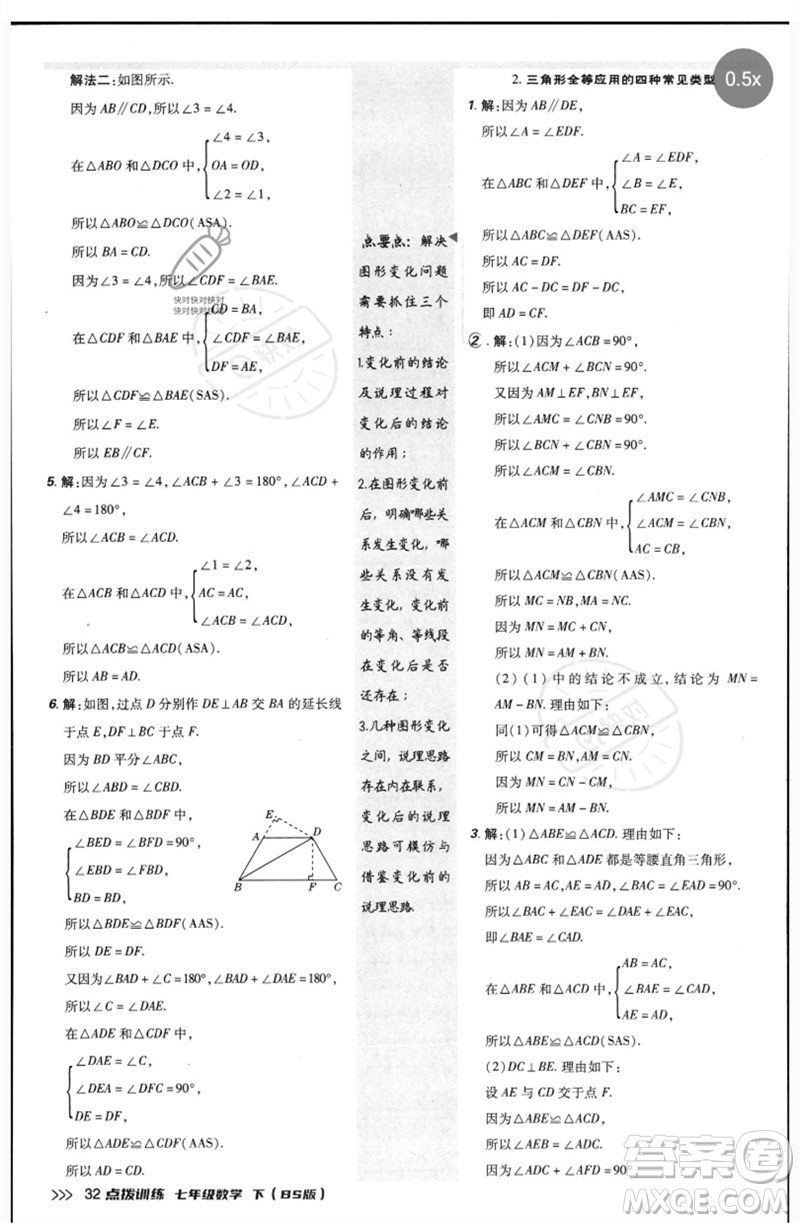 解法二:如图所示.
因为 AB∥CD,所以∠3 = ∠4.
在△ABO 和△DCO 中,
∠4 = ∠3,
OA = OD,
∠2 = ∠1,
所以△ABO≌△DCO(ASA).
所以 BA = CD.
因为∠3 = ∠4,所以∠CDF = ∠BAE.
在△CDF 和△BAE 中,
CD = BA,
∠CDF = ∠BAE,
DF = AE,
所以△CDF≌△BAE(SAS).
所以∠F = ∠E.
所以 EB∥CF.
5. 解:因为∠3 = ∠4,∠ACB + ∠3 = 180°,∠ACD +
∠4 = 180°,
所以∠ACB = ∠ACD.
在△ACB 和△ACD 中,
∠1 = ∠2,
AC = AC,
∠ACB = ∠ACD,
所以△ACB≌△ACD(ASA).
所以 AB = AD.
6. 解:如图,过点 D 分别作 DE⊥AB 交 BA 的延长线
于点 E,DF⊥BC 于点 F.
因为 BD 平分∠ABC,
所以∠ABD = ∠CBD.
在△BDE 和△BDF 中,
∠BED = ∠BFD = 90°,
∠EBD = ∠FBD,
BD = BD,
E
A
D
B
F
C
所以△BDE≌△BDF(AAS).
所以 DE = DF.
又因为∠BAD + ∠C = 180°,∠BAD + ∠DAE = 180°,
所以∠C = ∠DAE.
在△ADE 和△CDF 中,
∠DAE = ∠C,
∠DEA = ∠DFC = 90°,
DE = DF,
所以△ADE≌△CDF(AAS).
所以 AD = CD.
点要点:解决
图形变化问题
需要抓住三个
特点:
1.变化前的结论
及说理过程对
变化后的结论
的作用;
2.在图形变化前
后,明确哪些关
系发生变化,哪
些关系没有发
生变化,变化前
的等角、等线段
在变化后是否
还存在;
3.几种图形变化
之间,说理思路
存在内在联系,
变化后的说理
思路可模仿与
借鉴变化前的
说理思路.
2. 三角形全等应用的四种常见类型
0.5x
1. 解:因为 AB∥DE,
所以∠A = ∠EDF.
在△ABC 和△DEF 中,
∠A = ∠EDF,
∠B = ∠E,
BC = EF,
所以△ABC≌△DEF(AAS).
所以 AC = DF.
所以 AC - DC = DF - DC,
即 AD = CF.
2. 解:(1)因为∠ACB = 90°,
所以∠ACM + ∠BCN = 90°.
又因为 AM⊥EF,BN⊥EF,
所以∠AMC = ∠CNB = 90°.
所以∠BCN + ∠CBN = 90°.
所以∠ACM = ∠CBN.
在△ACM 和△CBN 中,
∠AMC = ∠CNB,
∠ACM = ∠CBN,
AC = CB,
所以△ACM≌△CBN(AAS).
所以 MC = NB,MA = NC.
因为 MN = MC + CN,
所以 MN = AM + BN.
(2)(1)中的结论不成立,结论为 MN =
AM - BN. 理由如下:
同(1)可得△ACM≌△CBN(AAS),
所以 CM = BN,AM = CN.
因为 MN = CN - CM,
所以 MN = AM - BN.
3. 解:(1)△ABE≌△ACD. 理由如下:
因为△ABC 和△ADE 都是等腰直角三角形,
所以 AB = AC,AE = AD,∠BAC = ∠EAD = 90°.
所以∠BAC + ∠EAC = ∠DAE + ∠EAC,
即∠BAE = ∠CAD.
在△ABE 和△ACD 中,
AB = AC,
∠BAE = ∠CAD,
AE = AD,
所以△ABE≌△ACD(SAS).
(2)DC⊥BE. 理由如下:
设 AE 与 CD 交于点 F.
因为△ABE≌△ACD,
所以∠AEB = ∠ADC.
因为∠ADC + ∠AFD = 90°,
>>> 32 点拨训练 七年级数学 下(BS版)
快对快对快对
快对快对快对
答案圈
MXQE.COM